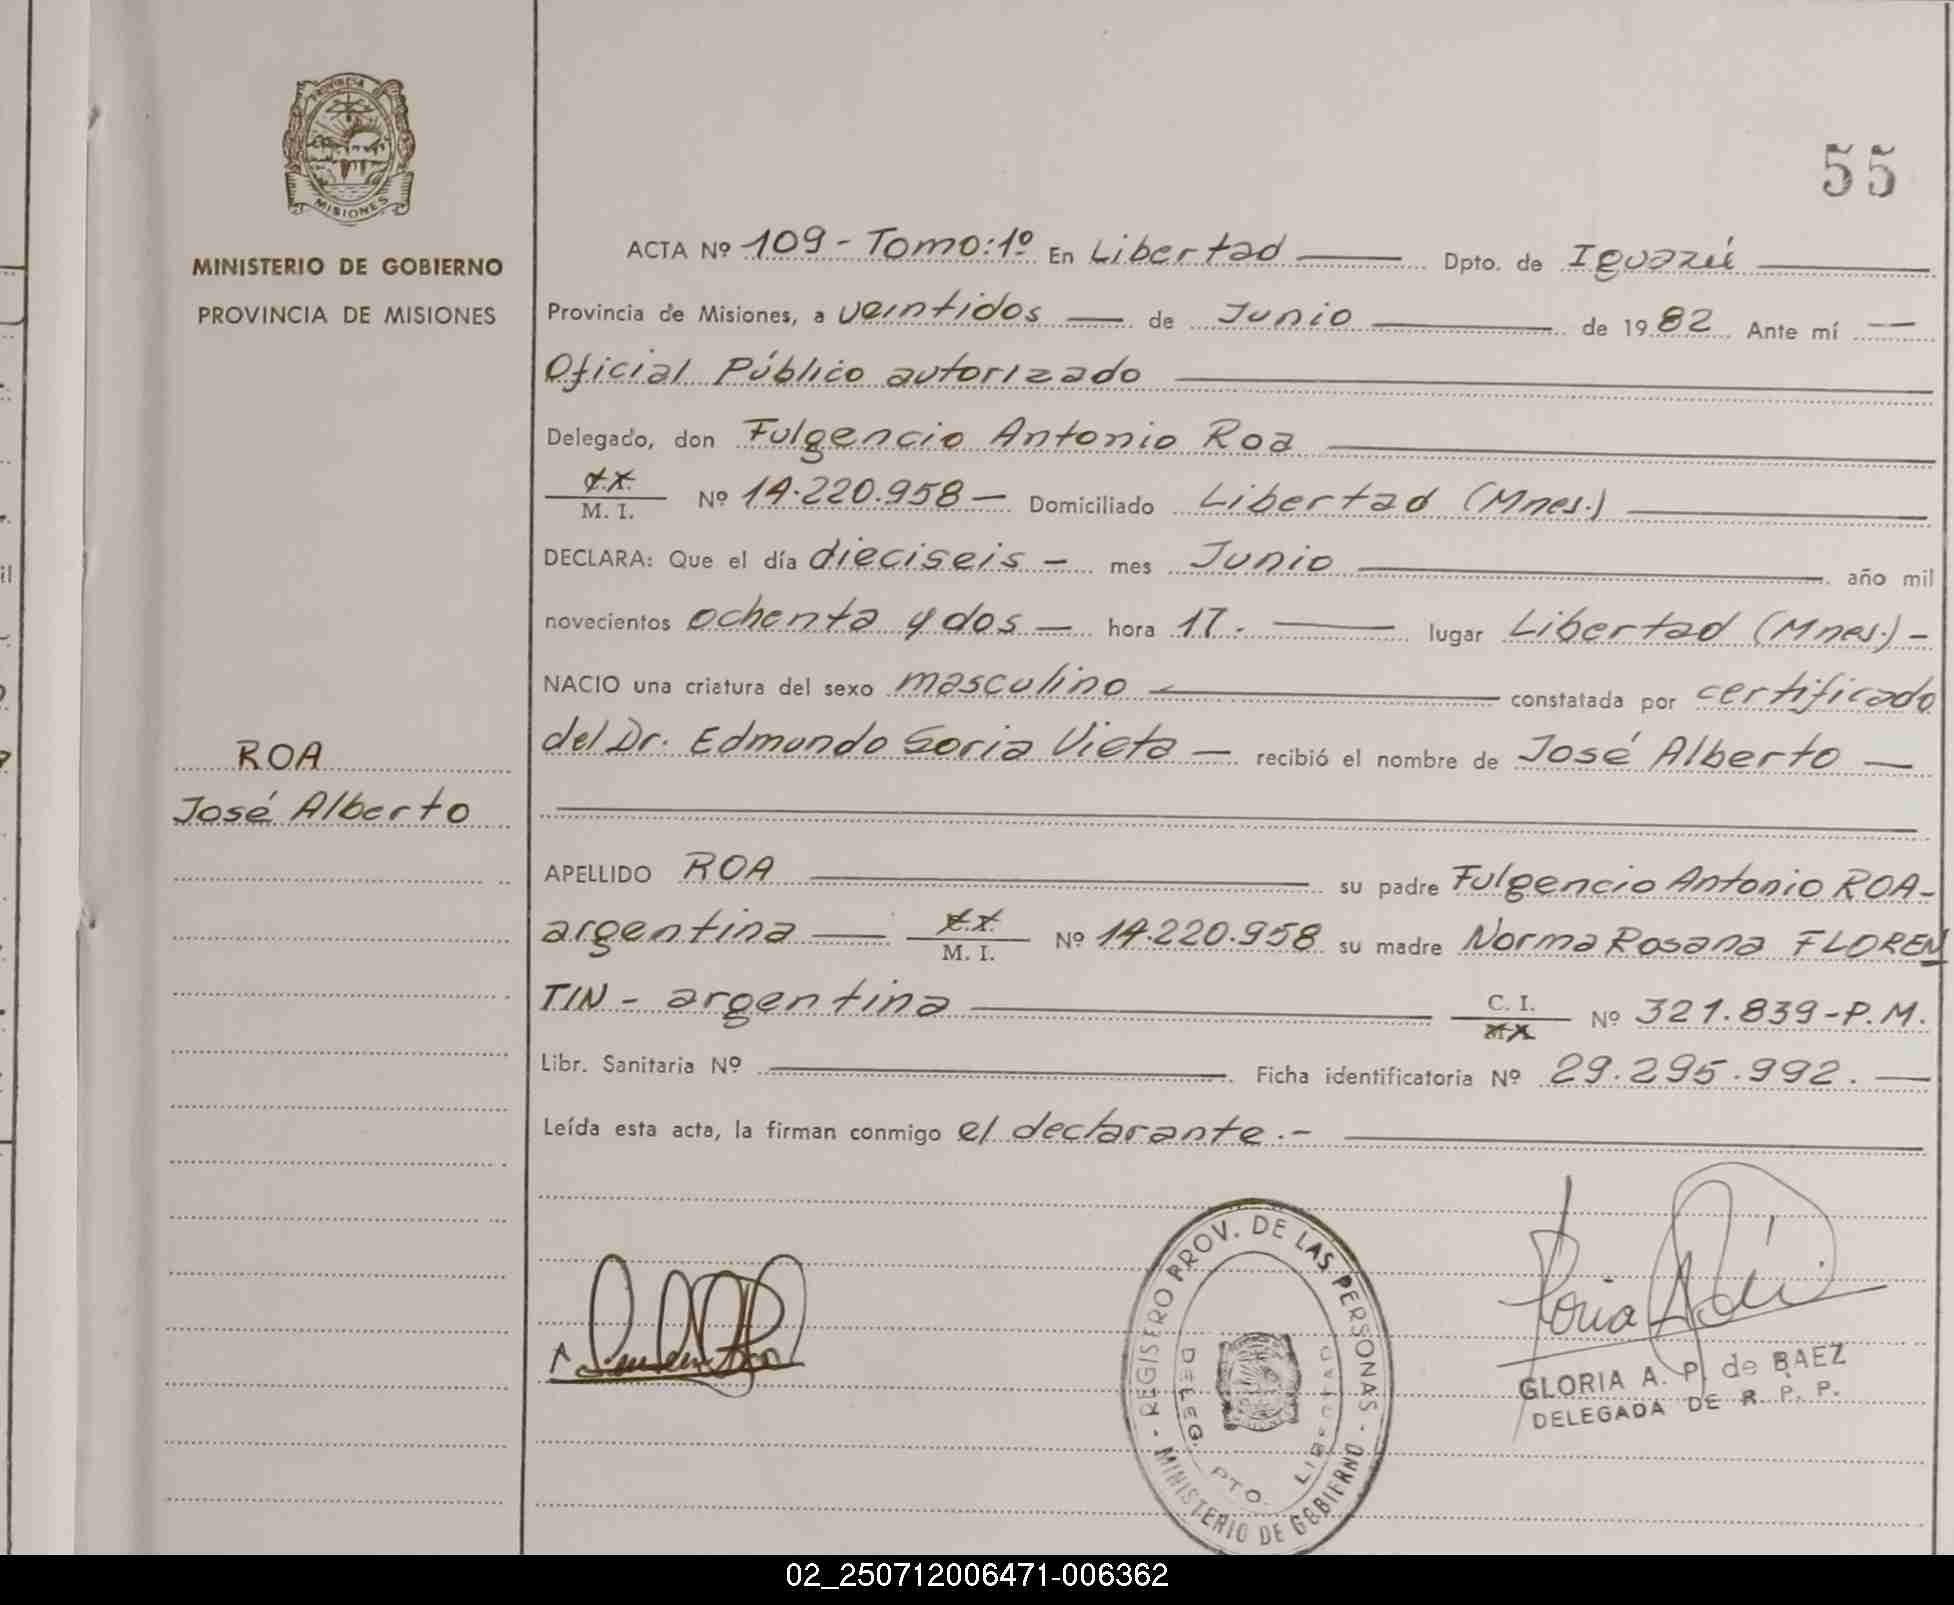 PROVINCIA
MISIONES
MINISTERIO DE GOBIERNO
PROVINCIA DE MISIONES
ROA
José Alberto
55
ACTA Nº 109 - Tomo: 1º En Libertad Dpto. de Iguazú
Provincia de Misiones, a veintidos de Junio de 1982 Ante mí
Oficial Público autorizado
Delegado, don Fulgencio Antonio Roa
C.I.
M. I. Nº 14.220.958 - Domiciliado Libertad (Mnes.)
DECLARA: Que el día dieciseis - mes Junio año mil
novecientos ochenta y dos - hora 17. lugar Libertad (Mnes.) -
NACIO una criatura del sexo masculino constatada por certificado
del Dr. Edmundo Soria Vieta - recibió el nombre de José Alberto -
APELLIDO ROA su padre Fulgencio Antonio ROA -
argentina C.I.
M. I. Nº 14.220.958 su madre Norma Rosana FLOREN
TIN - argentina C. I. Nº 321.839 - P.M.
Libr. Sanitaria Nº Ficha identificatoria Nº 29.295.992. -
Leída esta acta, la firman conmigo el declarante. -
REGISERO PROV. DE LAS PERSONAS - MINISTERIO DE GOBIERNO -
DELEG. PTO. LIBERTAD
GLORIA A. P. de BAEZ
DELEGADA DE R. P. P.
02_250712006471-006362